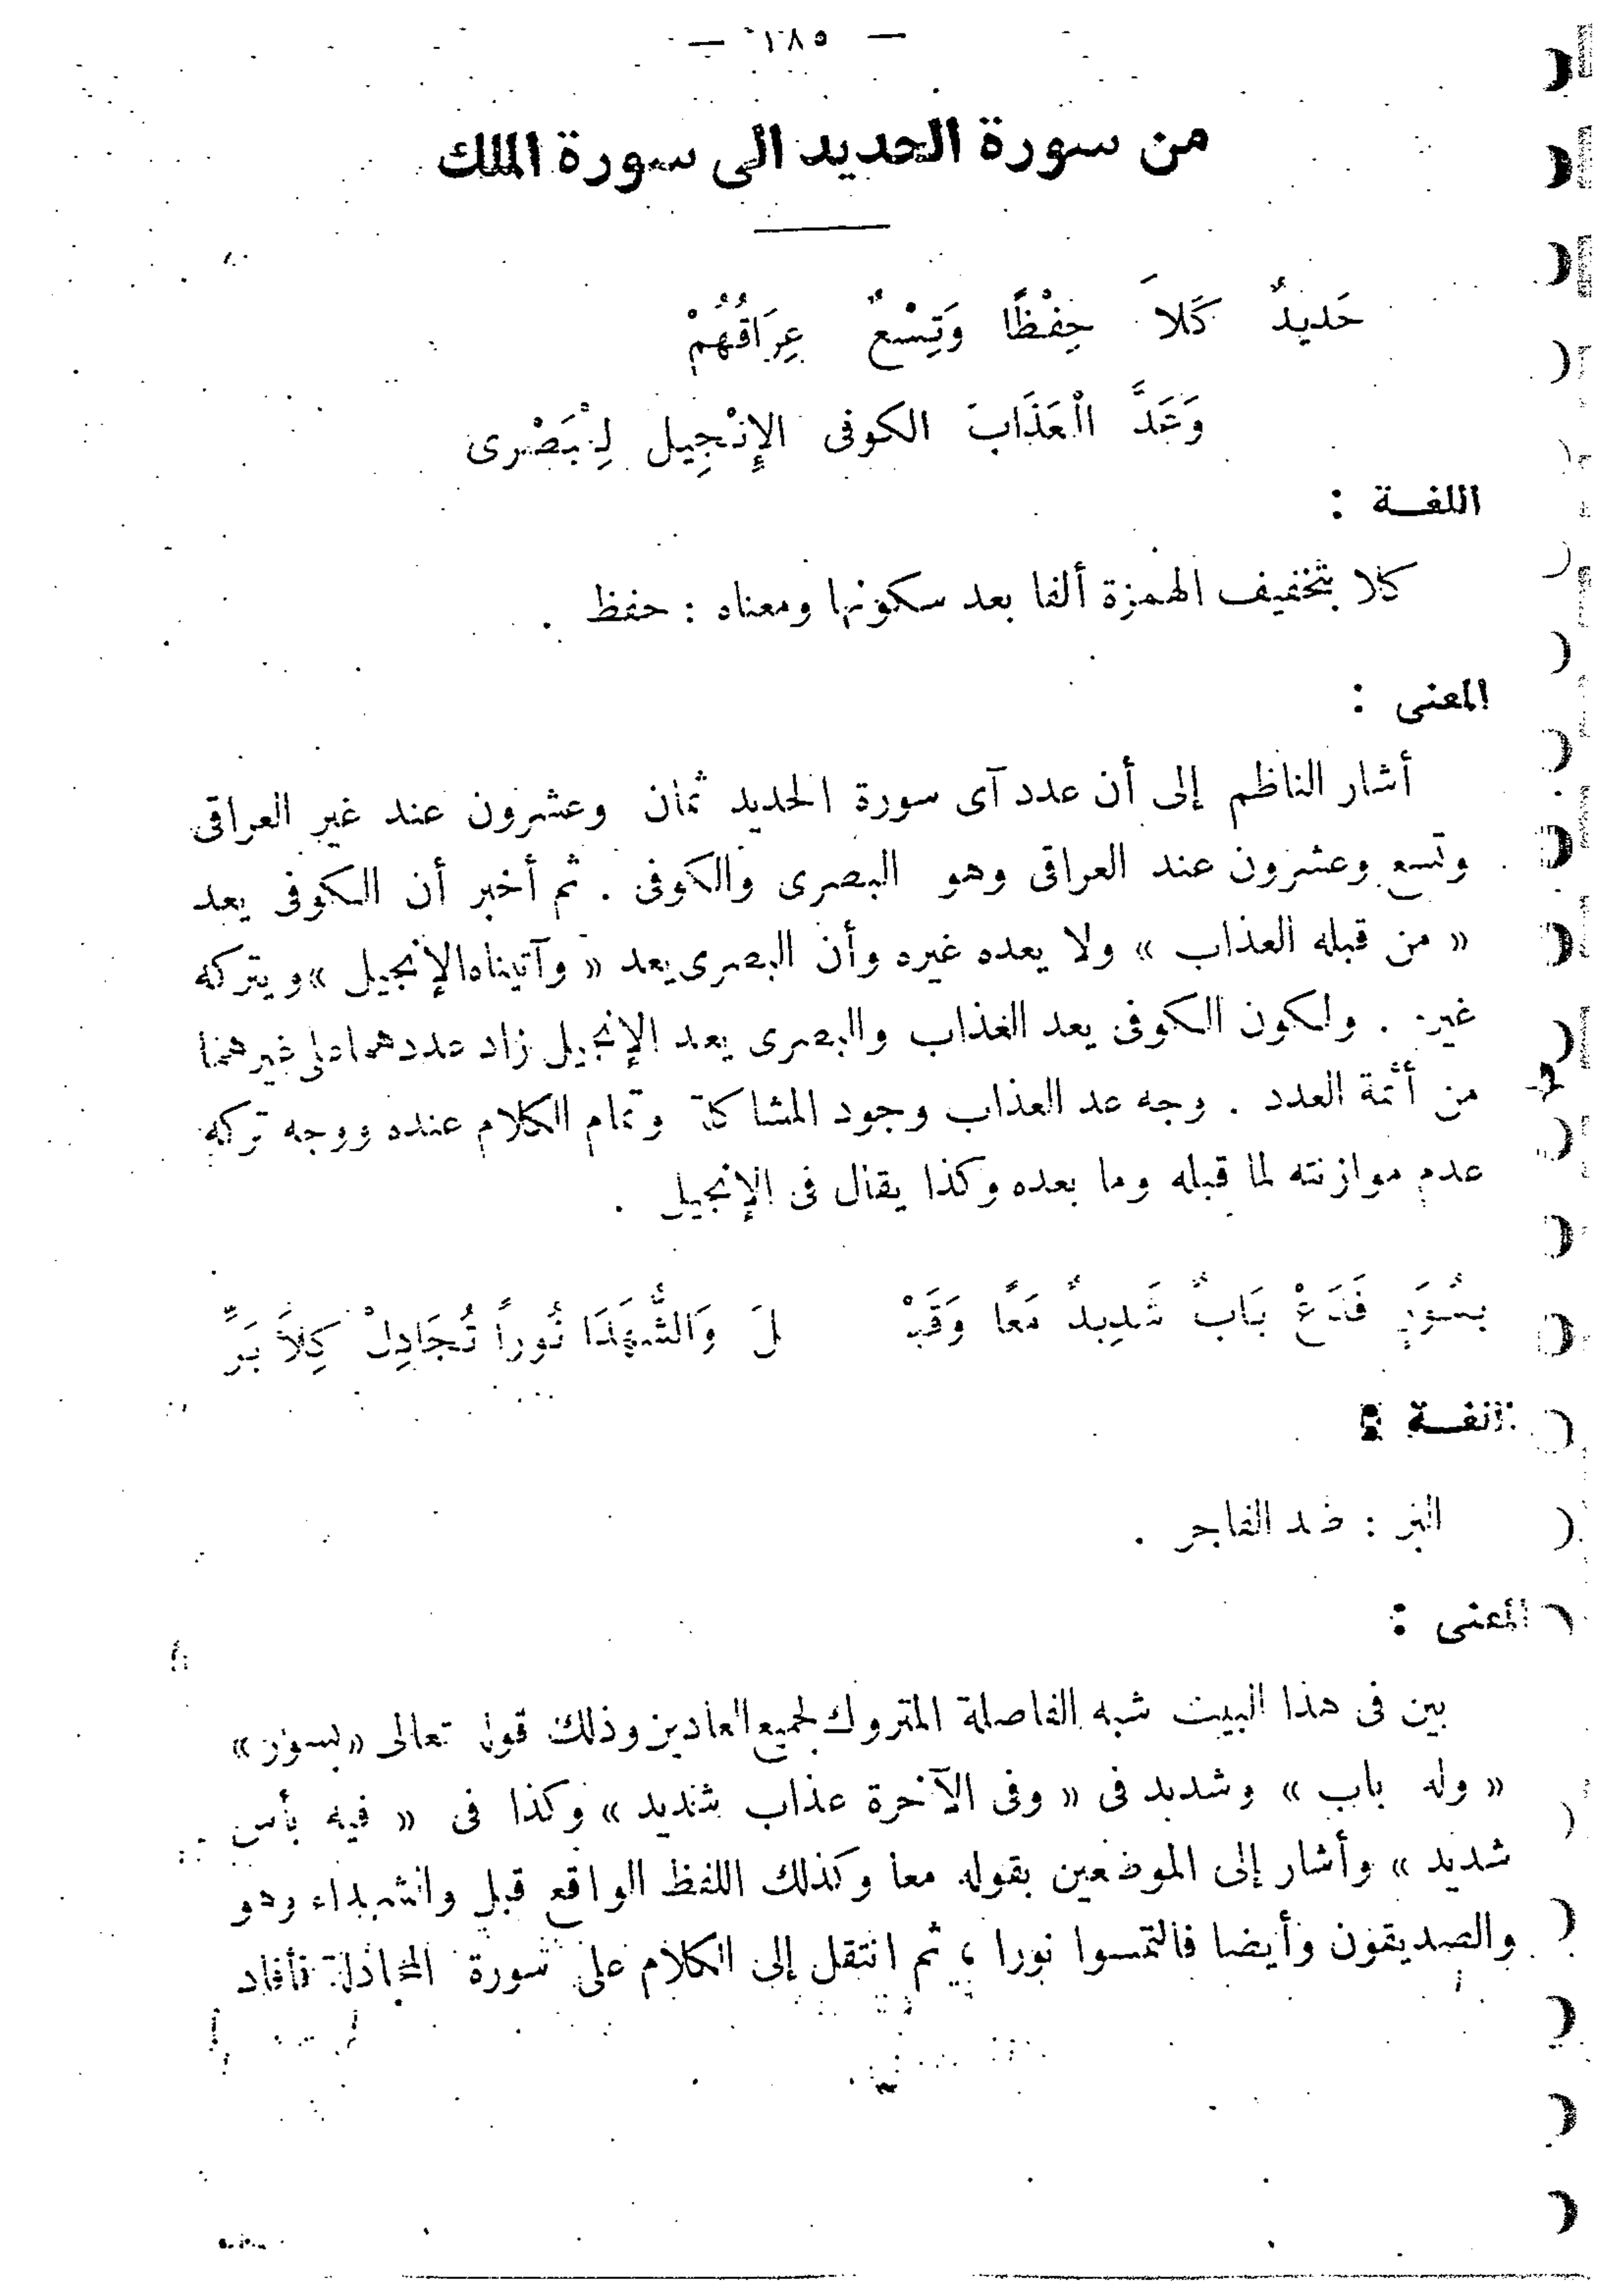 — ١٨٥ —
من سورة الحديد الى سورة الملك
حَديدٌ كَلاَ حِفْظًا وَتِسْعٌ عِرَاقُهُمْ
وَعَدَّ الْعَذَابَ الكوفى الإِنْجِيل لِبَصْرى
اللغـة :
كلا بتخفيف الهمزة ألفا بعد سكونها ومعناه : حفظ .
المعنى :
أشار الناظم إلى أن عدد آى سورة الحديد ثمان وعشرون عند غير العراقى
وتسع وعشرون عند العراقى وهو البصرى والكوفى . ثم أخبر أن الكوفى يعد
« من قبله العذاب » ولا يعده غيره وأن البصرى يعد « وآتيناه الإنجيل » ويتركه
غيره . ولكون الكوفى يعد العذاب والبصرى يعد الإنجيل زاد عددهما على غيرهما
من أئمة العدد . وجه عد العذاب وجود المشاكلة وتمام الكلام عنده ووجه تركه
عدم موازنته لما قبله وما بعده وكذا يقال فى الإنجيل .
بسُورٍ فَدَعْ بَابٌ شَدِيدٌ مَعًا وَقَبْـ لَ وَالشُّهَدَا نُوراً تُجَادِلْ كِلاَ بَرٍّ
اللغـة :
البر : ضد الفاجر .
المعنى :
بين فى هذا البيت شبه الفاصلة المتروك لجميع العادين وذلك قوله تعالى « بسور »
« وله باب » وشديد فى « وفى الآخرة عذاب شديد » وكذا فى « فيه بأس
شديد » وأشار إلى الموضعين بقوله معا وكذلك اللفظ الواقع قبل والشهداء وهو
والصديقون وأيضا فالتمسوا نورا ، ثم انتقل إلى الكلام على سورة المجادلة فأفاد